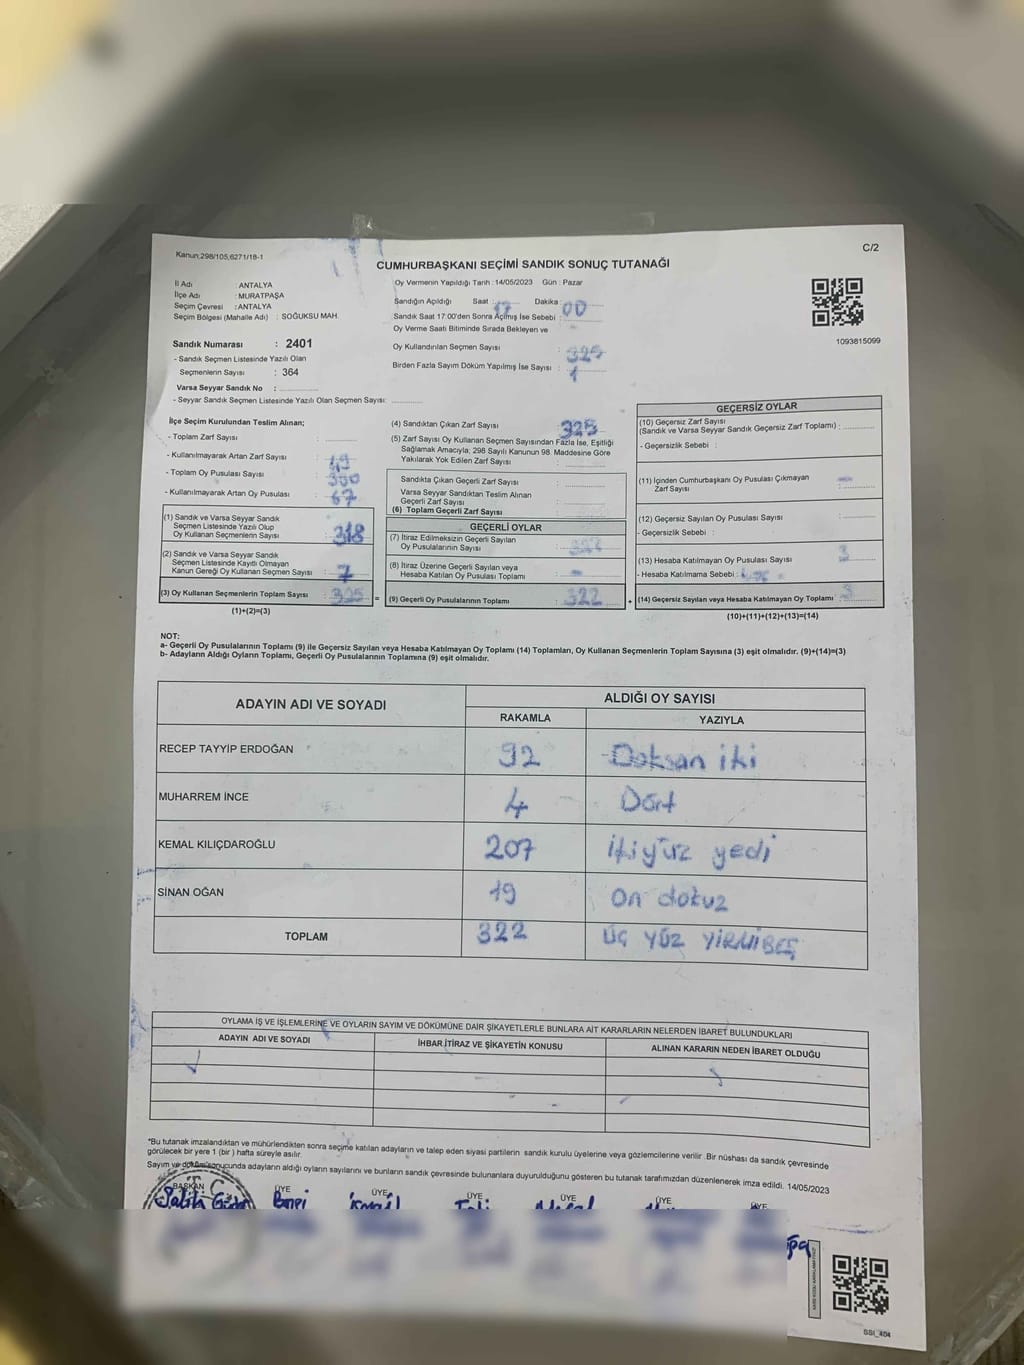 C/2
Kanun:298/105,6271/18-1
CUMHURBAŞKANI SEÇİMİ SANDIK SONUÇ TUTANAĞI
İl Adı : ANTALYA
İlçe Adı : MURATPAŞA
Seçim Çevresi : ANTALYA
Seçim Bölgesi (Mahalle Adı) : SOĞUKSU MAH.
Sandık Numarası : 2401
- Sandık Seçmen Listesinde Yazılı Olan
Seçmenlerin Sayısı : 364
Varsa Seyyar Sandık No :
- Seyyar Sandık Seçmen Listesinde Yazılı Olan Seçmen Sayısı:
Oy Vermenin Yapıldığı Tarih : 14/05/2023 Gün : Pazar
Sandığın Açıldığı Saat : 17 Dakika : 00
Sandık Saat 17:00'den Sonra Açılmış İse Sebebi :
Oy Verme Saati Bitiminde Sırada Bekleyen ve
Oy Kullandırılan Seçmen Sayısı : 325
Birden Fazla Sayım Döküm Yapılmış İse Sayısı : 1
1093815099
İlçe Seçim Kurulundan Teslim Alınan;
- Toplam Zarf Sayısı :
- Kullanılmayarak Artan Zarf Sayısı :
- Toplam Oy Pusulası Sayısı :
- Kullanılmayarak Artan Oy Pusulası : 67
(1) Sandık ve Varsa Seyyar Sandık
Seçmen Listesinde Yazılı Olup
Oy Kullanan Seçmenlerin Sayısı : 318
(2) Sandık ve Varsa Seyyar Sandık
Seçmen Listesinde Kayıtlı Olmayan
Kanun Gereği Oy Kullanan Seçmen Sayısı : 7
(3) Oy Kullanan Seçmenlerin Toplam Sayısı : 325 =
(1)+(2)=(3)
(4) Sandıktan Çıkan Zarf Sayısı : 325
(5) Zarf Sayısı Oy Kullanan Seçmen Sayısından Fazla İse, Eşitliği
Sağlamak Amacıyla; 298 Sayılı Kanunun 98. Maddesine Göre
Yakılarak Yok Edilen Zarf Sayısı :
Sandıkta Çıkan Geçerli Zarf Sayısı :
Varsa Seyyar Sandıktan Teslim Alınan
Geçerli Zarf Sayısı :
(6) Toplam Geçerli Zarf Sayısı :
GEÇERLİ OYLAR
(7) İtiraz Edilmeksizin Geçerli Sayılan
Oy Pusulalarının Sayısı : 322
(8) İtiraz Üzerine Geçerli Sayılan veya
Hesaba Katılan Oy Pusulası Toplamı : -
(9) Geçerli Oy Pusulalarının Toplamı : 322 +
GEÇERSİZ OYLAR
(10) Geçersiz Zarf Sayısı
(Sandık ve Varsa Seyyar Sandık Geçersiz Zarf Toplamı) :
- Geçersizlik Sebebi :
(11) İçinden Cumhurbaşkanı Oy Pusulası Çıkmayan
Zarf Sayısı :
(12) Geçersiz Sayılan Oy Pusulası Sayısı :
- Geçersizlik Sebebi :
(13) Hesaba Katılmayan Oy Pusulası Sayısı : 3
- Hesaba Katılmama Sebebi :
(14) Geçersiz Sayılan veya Hesaba Katılmayan Oy Toplamı : 3
(10)+(11)+(12)+(13)=(14)
NOT:
a- Geçerli Oy Pusulalarının Toplamı (9) ile Geçersiz Sayılan veya Hesaba Katılmayan Oy Toplamı (14) Toplamları, Oy Kullanan Seçmenlerin Toplam Sayısına (3) eşit olmalıdır. (9)+(14)=(3)
b- Adayların Aldığı Oyların Toplamı, Geçerli Oy Pusulalarının Toplamına (9) eşit olmalıdır.
ADAYIN ADI VE SOYADI ALDIĞI OY SAYISI
RAKAMLA YAZIYLA
RECEP TAYYİP ERDOĞAN 92 Doksan iki
MUHARREM İNCE 4 Dört
KEMAL KILIÇDAROĞLU 207 ikiyüz yedi
SİNAN OĞAN 19 On dokuz
TOPLAM 322 ÜÇ YÜZ YİRMİBEŞ
OYLAMA İŞ VE İŞLEMLERİNE VE OYLARIN SAYIM VE DÖKÜMÜNE DAİR ŞİKAYETLERLE BUNLARA AİT KARARLARIN NELERDEN İBARET BULUNDUKLARI
ADAYIN ADI VE SOYADI İHBAR,İTİRAZ VE ŞİKAYETİN KONUSU ALINAN KARARIN NEDEN İBARET OLDUĞU
*Bu tutanak imzalandıktan ve mühürlendikten sonra seçime katılan adayların ve talep eden siyasi partilerin sandık kurulu üyelerine veya gözlemcilerine verilir .Bir nüshası da sandık çevresinde
görülecek bir yere 1 (bir ) hafta süreyle asılır.
Sayım ve döküm sonucunda adayların aldığı oyların sayılarını ve bunların sandık çevresinde bulunanlara duyurulduğunu gösteren bu tutanak tarafımızdan düzenlenerek imza edildi. 14/05/2023
BAŞKAN ÜYE ÜYE ÜYE ÜYE ÜYE ÜYE
Salih
SSI_404